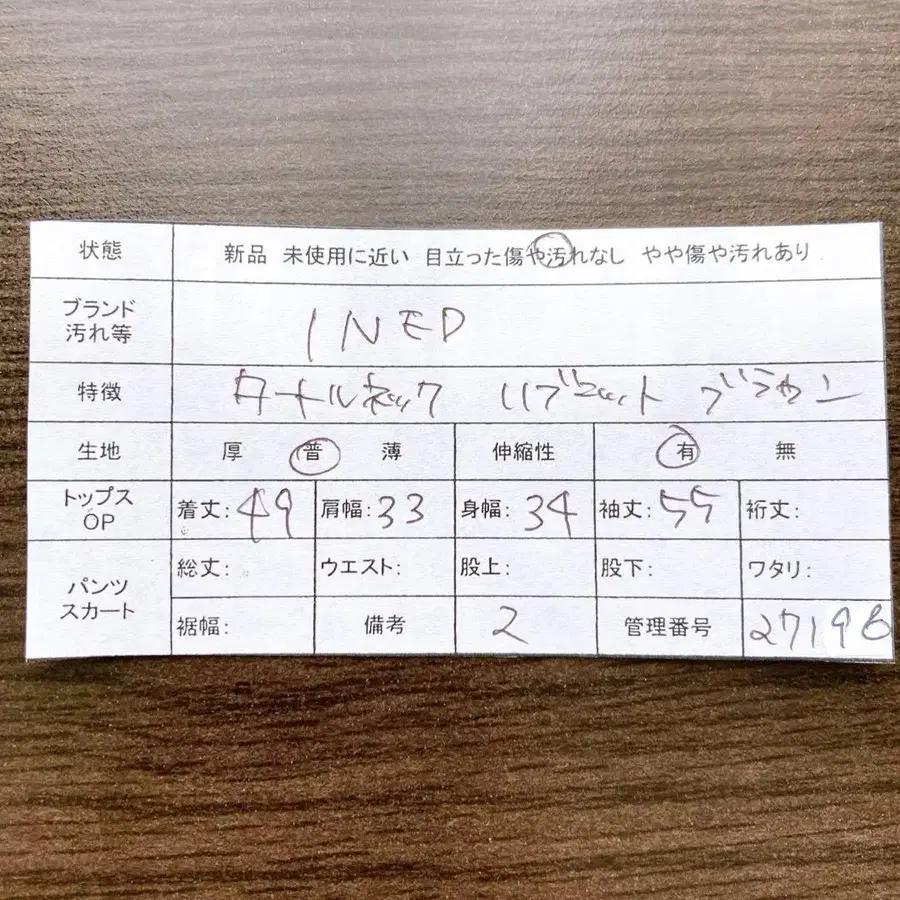 状態 新品 未使用に近い 目立った傷や汚れなし やや傷や汚れあり
ブランド
汚れ等 INED
特徴 タートルネック リブニット ブラウン
生地 厚 普 薄 伸縮性 有 無
トップス
OP 着丈:49 肩幅:33 身幅:34 袖丈:55 裄丈:
パンツ
スカート 総丈: ウエスト: 股上: 股下: ワタリ:
裾幅: 備考 2 管理番号 27196